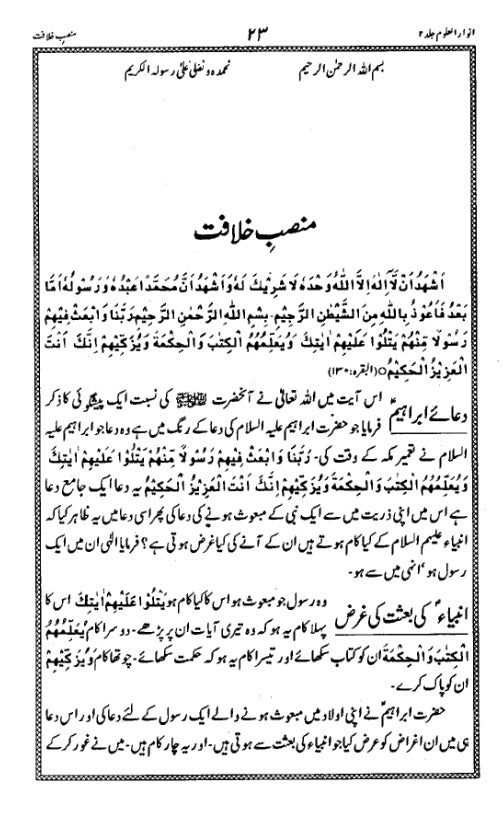 انوار العلوم جلد ۲
۲۳
منصبِ خلافت
بسم اللہ الرحمٰن الرحیم
نحمدہ و نصلی علیٰ رسولہ الکریم
منصبِ خلافت
اَشْهَدُ اَنْ لَّآ اِلٰهَ اِلَّا اللّٰهُ وَحْدَهٗ لَا شَرِيْكَ لَهٗ وَ اَشْهَدُ اَنَّ مُحَمَّدًا عَبْدُهٗ وَ رَسُوْلُهٗ اَمَّا
بَعْدُ فَاَعُوْذُ بِاللّٰهِ مِنَ الشَّيْطٰنِ الرَّجِيْمِ۔ بِسْمِ اللّٰهِ الرَّحْمٰنِ الرَّحِيْمِ رَبَّنَا وَ ابْعَثْ فِيْهِمْ
رَسُوْلًا مِّنْهُمْ يَتْلُوْا عَلَيْهِمْ اٰيٰتِكَ وَ يُعَلِّمُهُمُ الْكِتٰبَ وَ الْحِكْمَةَ وَ يُزَكِّيْهِمْ اِنَّكَ اَنْتَ
الْعَزِيْزُ الْحَكِيْمُ۝ (البقرہ: ۱۳۰)
دعائے ابراہیمؑ
اس آیت میں اللہ تعالیٰ نے آنحضرت ﷺ کی نسبت ایک پیشگوئی کا ذکر
فرمایا جو حضرت ابراہیم علیہ السلام کی دعا کے رنگ میں ہے وہ دعا جو ابراہیم علیہ
السلام نے تعمیر مکہ کے وقت کی۔ رَبَّنَا وَ ابْعَثْ فِيْهِمْ رَسُوْلًا مِّنْهُمْ يَتْلُوْا عَلَيْهِمْ اٰيٰتِكَ
وَ يُعَلِّمُهُمُ الْكِتٰبَ وَ الْحِكْمَةَ وَ يُزَكِّيْهِمْ اِنَّكَ اَنْتَ الْعَزِيْزُ الْحَكِيْمُ یہ دعا ایک جامع دعا
ہے اس میں اپنی ذریت میں سے ایک نبی کے مبعوث ہونے کی دعا کی پھر اسی دعا میں یہ ظاہر کیا کہ
انبیاء علیہم السلام کے کیا کام ہوتے ہیں ان کے آنے کی کیا غرض ہوتی ہے؟ فرمایا الٰہی ان میں ایک
رسول ہو‘ انہی میں سے ہو۔
انبیاءؑ کی بعثت کی غرض
وہ رسول جو مبعوث ہو اس کا کیا کام ہو يَتْلُوْا عَلَيْهِمْ اٰيٰتِكَ اس کا
پہلا کام یہ ہو کہ وہ تیری آیات ان پر پڑھے۔ دوسرا کام يُعَلِّمُهُمُ
الْكِتٰبَ وَ الْحِكْمَةَ ان کو کتاب سکھائے اور تیسرا کام یہ ہو کہ حکمت سکھائے۔ چوتھا کام وَ يُزَكِّيْهِمْ
ان کو پاک کرے۔
حضرت ابراہیمؑ نے اپنی اولاد میں مبعوث ہونے والے ایک رسول کے لئے دعا کی اور اس دعا
ہی میں ان اغراض کو عرض کیا جو انبیاء کی بعثت سے ہوتی ہیں۔ اور یہ چار کام ہیں۔ میں نے غور کر کے